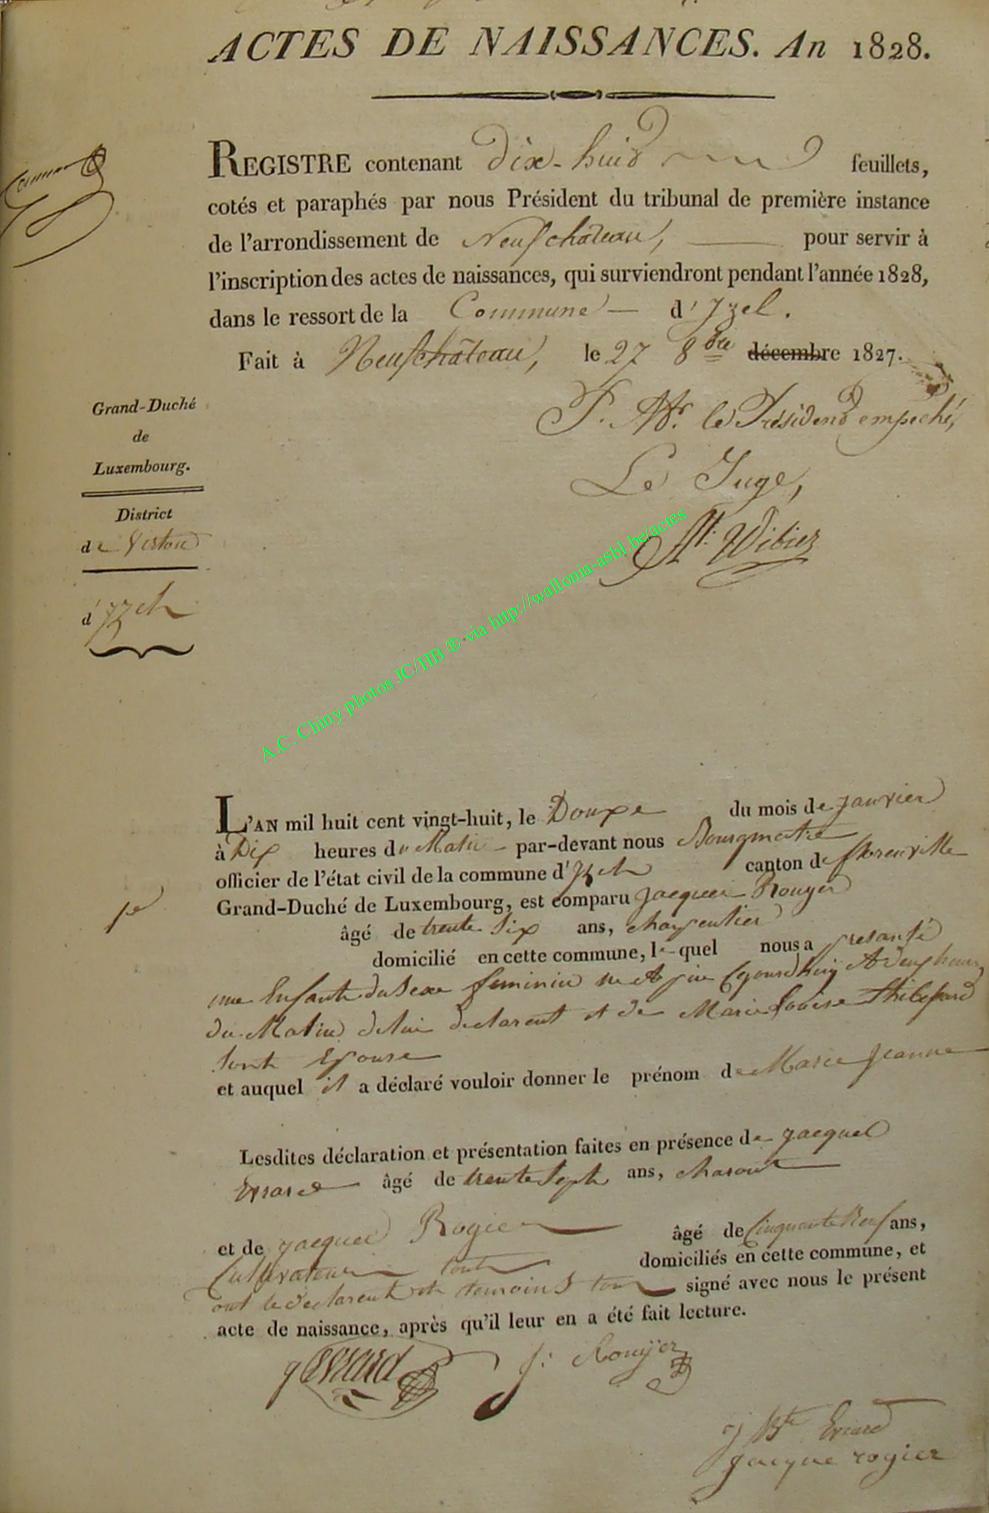 ACTES DE NAISSANCES. An 1828.
REGISTRE contenant dix-huit feuillets,
cotés et paraphés par nous Président du tribunal de première instance
de l'arrondissement de Neufchâteau, pour servir à
l'inscription des actes de naissances, qui surviendront pendant l'année 1828,
dans le ressort de la Commune d'Izel.
Fait à Neufchâteau, le 27 8bre décembre 1827.
P. Mr. le Président empeché,
Le Juge,
Grand-Duché
de
Luxembourg.
District
de Virton
d'Izel
A.C. Chiny photos JC/HB ® via http://wallonia-asbl.be/actes
L'AN mil huit cent vingt-huit, le Douze du mois de janvier
à Dix heures du Matin par-devant nous Bourgmestre
officier de l'état civil de la commune d'Izel canton de florenville
Grand-Duché de Luxembourg, est comparu jacques Rouyer
1e
âgé de trente Six ans, charpentier
domicilié en cette commune, lequel nous a presanté
une Enfante du Sexe feminin
du Matin de lui declarent et de Marie Louise
Sont Epouse
et auquel il a déclaré vouloir donner le prénom de Marie Jeanne
Lesdites déclaration et présentation faites en présence de jacques
Evrard âgé de trente Sept ans, charont
et de jacques Rogier âgé de Cinquante Neuf ans,
Cultivateur tout domiciliés en cette commune, et
ont le declarent et temoins tou signé avec nous le présent
acte de naissance, après qu'il leur en a été fait lecture.
J Evrard J: Rouyer
J Bte Evrard
jacque rogier